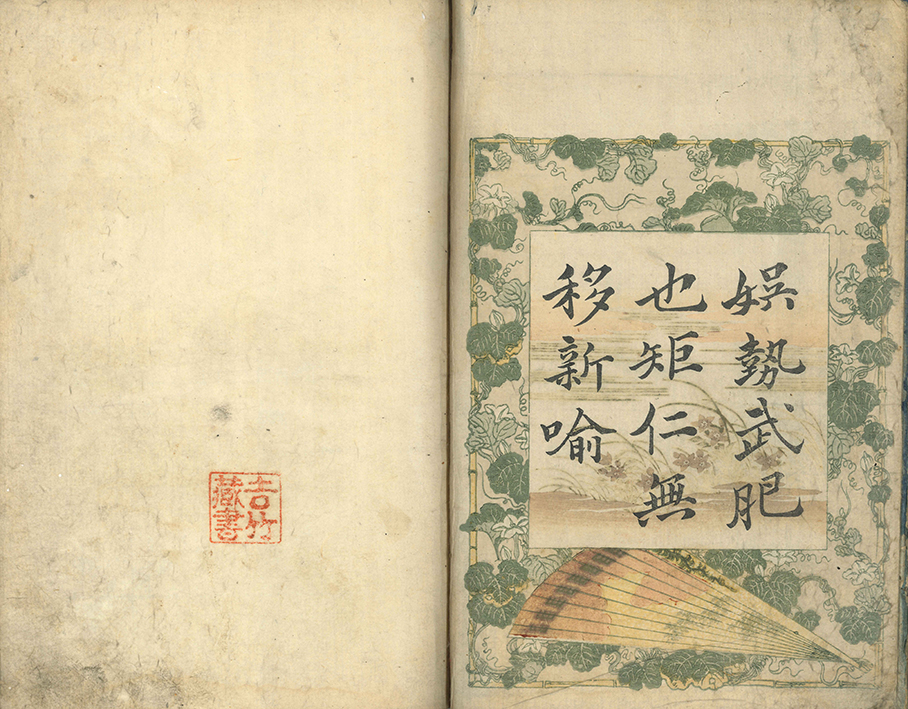 娯勢武肥
也矩仁無
移新喩
吉竹
藏書